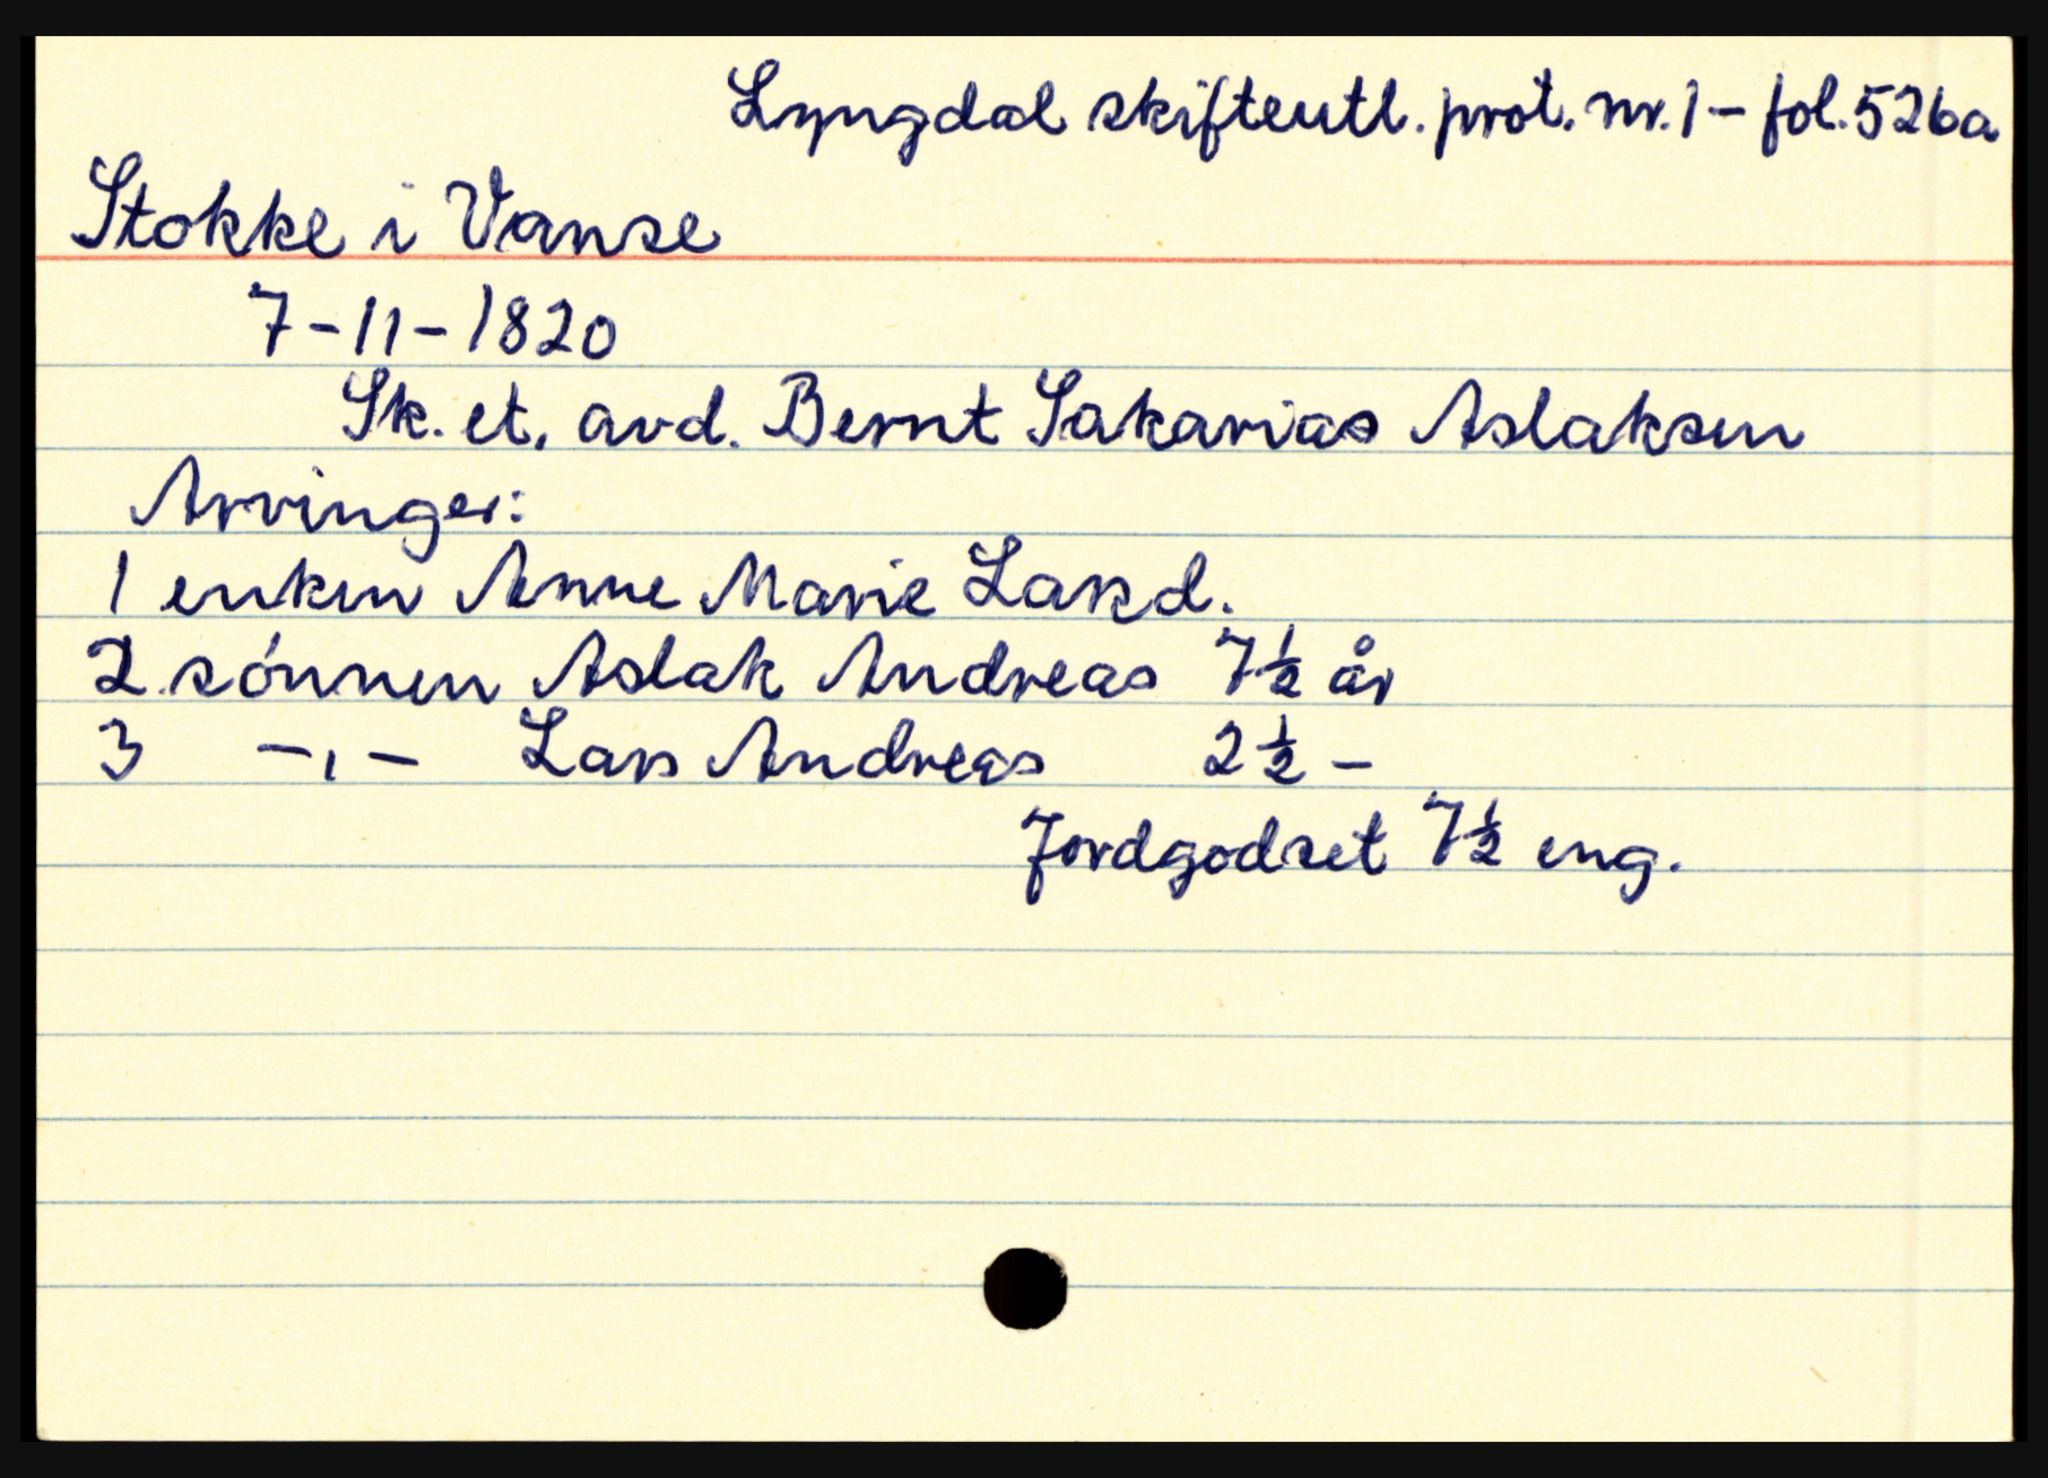 Lyngdal skifteutl. prot. nr. 1 - fol. 526a
Stokke i Vanse
7-11-1820
Sk. et. avd. Bernt Sakarias Aslaksen
Arvinger:
1 enken Anne Marie Larsd.
2 sónnen Aslak Andreas 7½ år
3 -,- Lars Andreas 2½ -
Jordgodset 7½ eng.